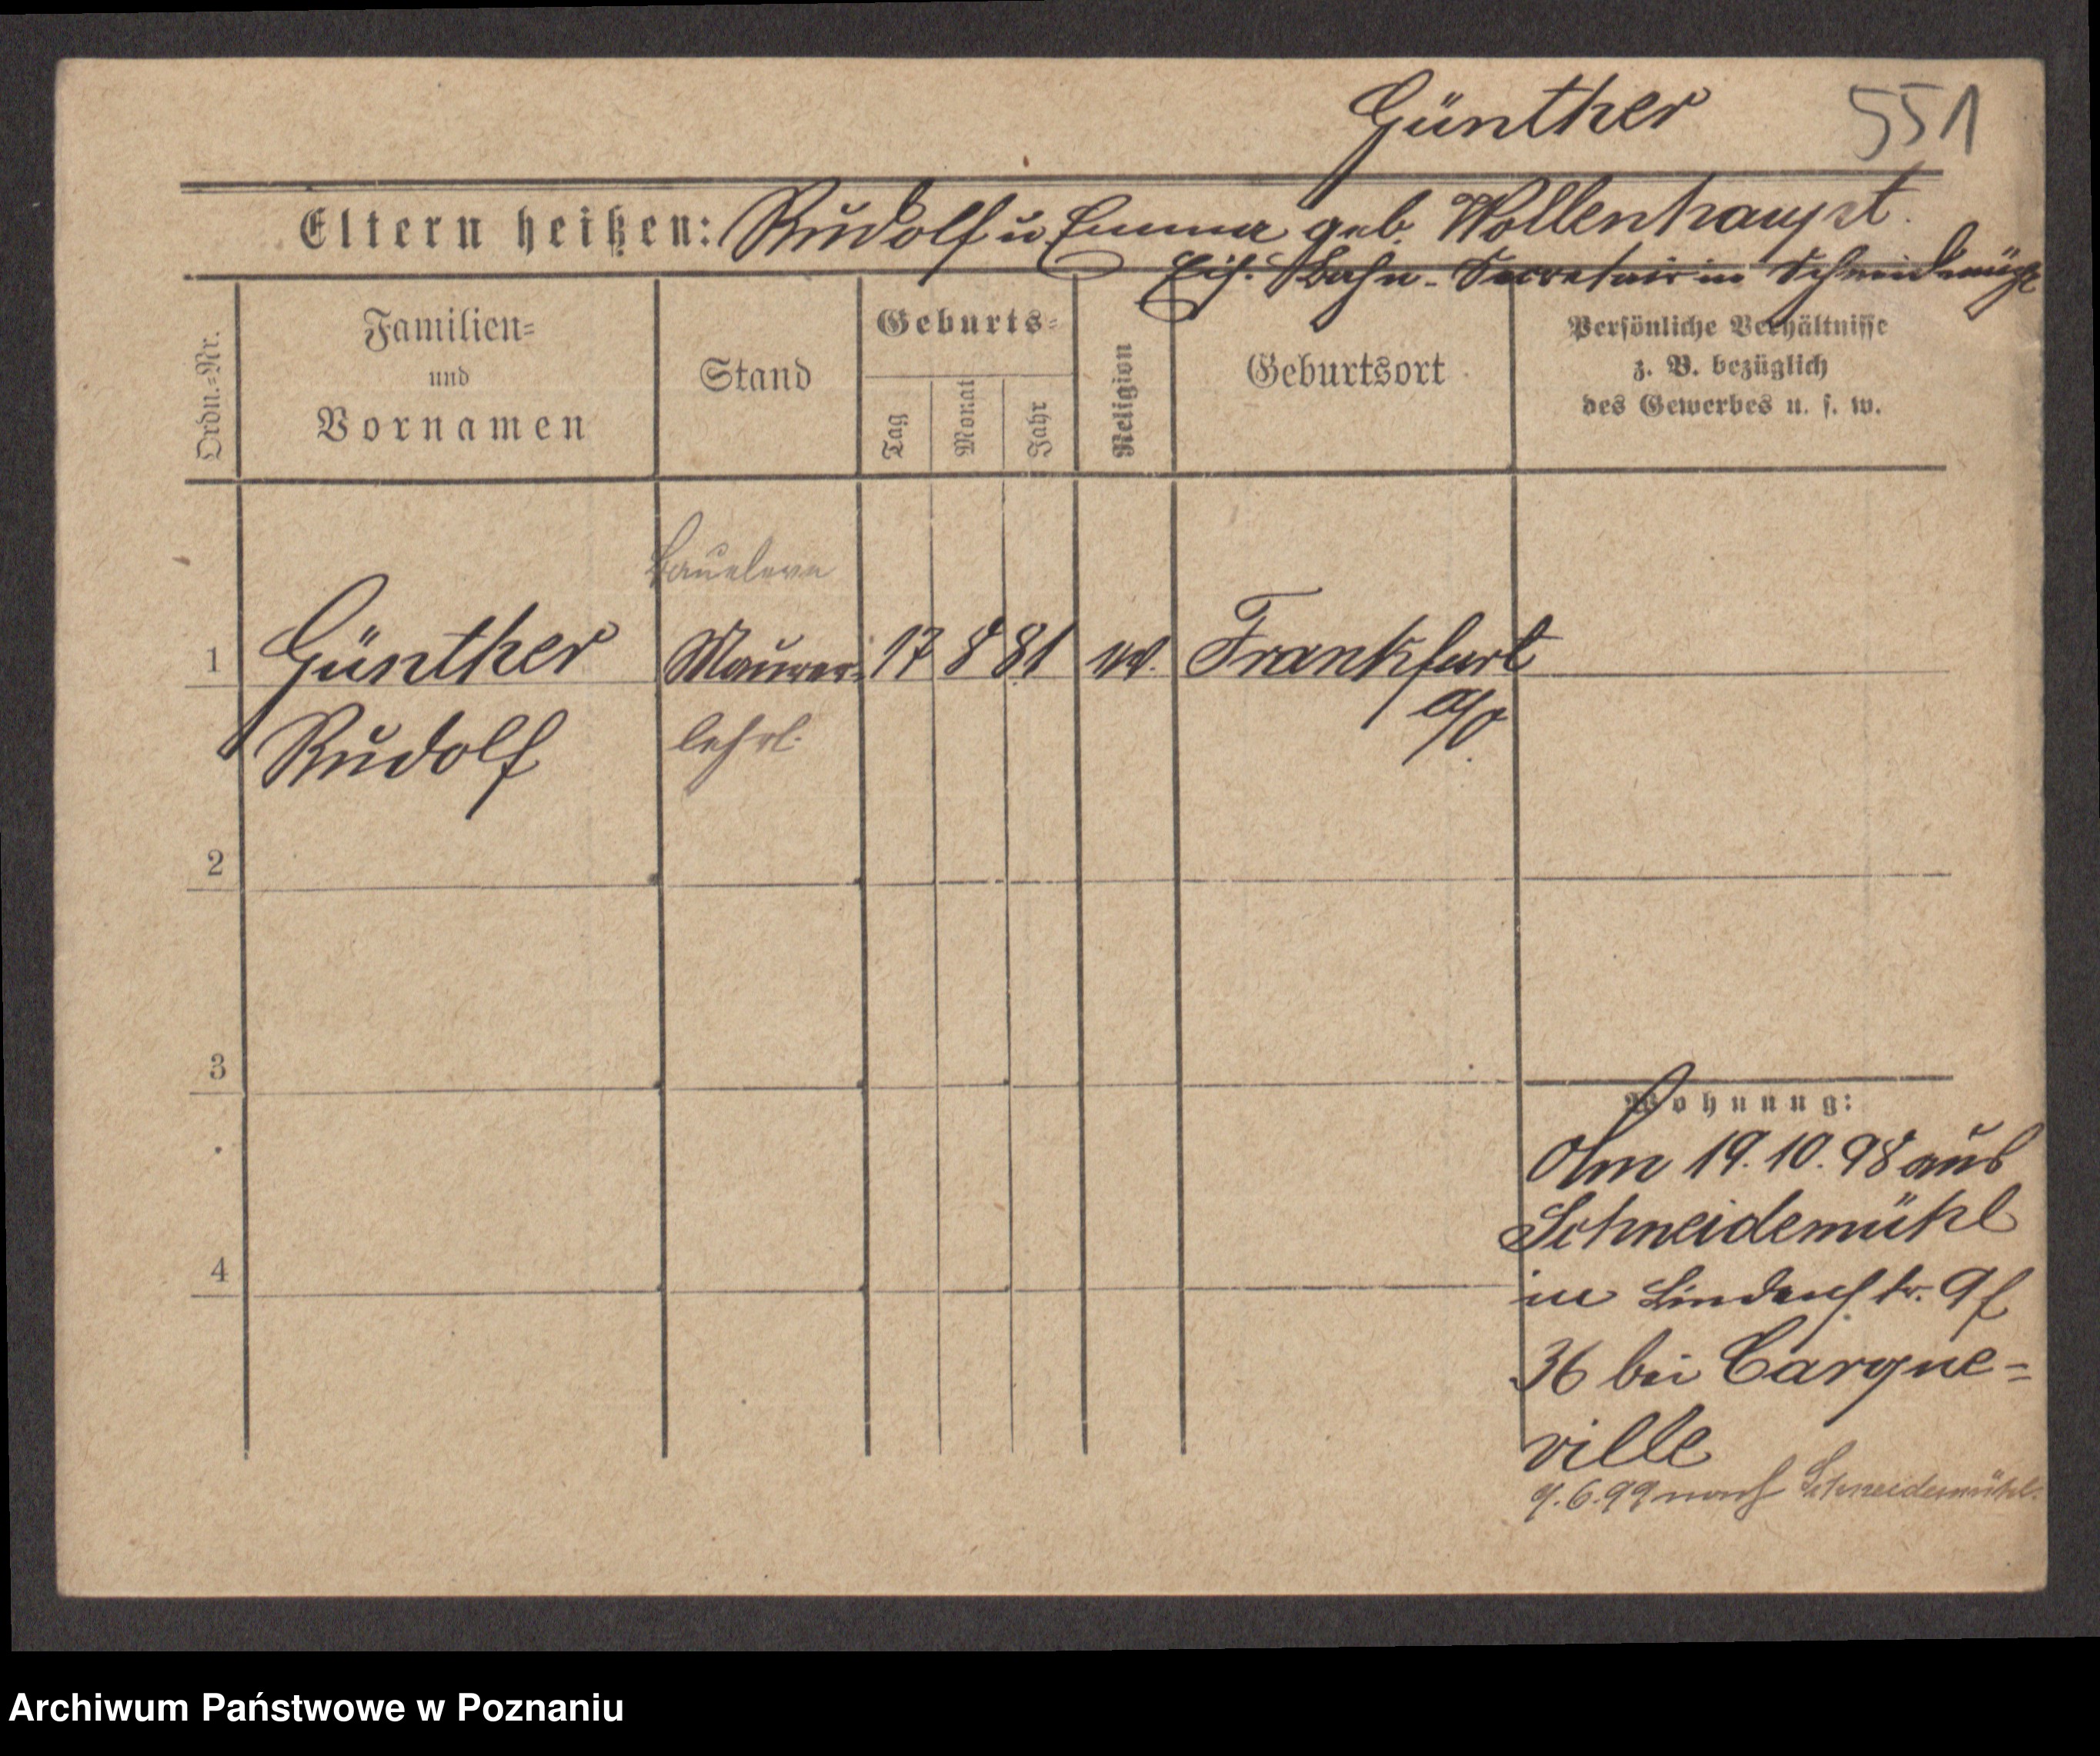 Günther 551
Eltern heißen: Rudolf u. Emma geb. Wollenhaupt.
Eis. Bahn-Secretair in Schneidemühl
Ordn.-Nr.
Familien-
und
Vornamen
Stand
Geburts-
Tag
Monat
Jahr
Religion
Geburtsort
Persönliche Verhältnisse
z. B. bezüglich
des Gewerbes u. s. w.
Baueleve
1 Günther Maurer- 17 8 81 Frankfurt
a/o.
Rudolf lehrl.
2
3
4
Wohnung:
Am 19. 10. 98 aus
Schneidemühl
in Lindenstr.
36 bei Carque-
ville
6. 99 nach Schneidemühl.
Archiwum Państwowe w Poznaniu